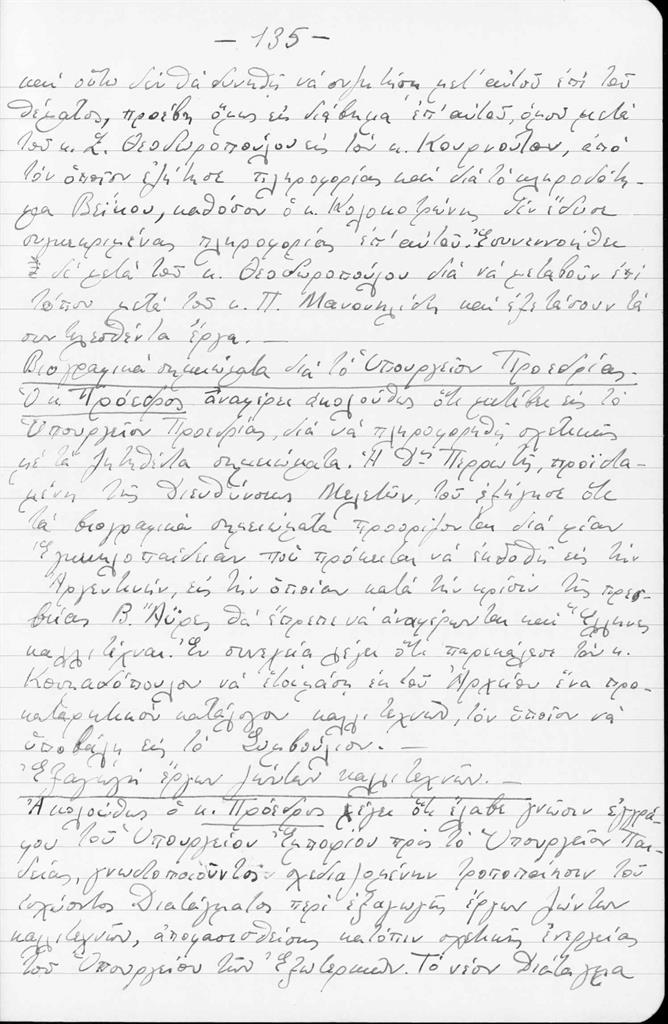 — 135 —
καὶ οὕτω δὲν θὰ δυνηθῇ νὰ συζητήσῃ μετ' αὐτοῦ ἐπὶ τοῦ
θέματος, προέβη ὅμως εἰς διάβημα ἐπ' αὐτοῦ, ὁμοῦ μετὰ
τοῦ κ. Σ. Θεοδωροπούλου εἰς τὸν κ. Κουρνοῦτον, ἀπὸ
τὸν ὁποῖον ἐζήτησε πληροφορίας καὶ διὰ τὸ κληροδότη-
μα Βεΐκου, καθόσον ὁ κ. Κολοκοτρώνης δὲν ἔδωσε
συγκεκριμένας πληροφορίας ἐπ' αὐτοῦ. Ἐσυνεννοήθη
δὲ μετὰ τοῦ κ. Θεοδωροπούλου διὰ νὰ μεταβοῦν ἐπὶ
τόπου μετὰ τοῦ κ. Π. Μανουηλίδη καὶ ἐξετάσουν τὰ
συντελεσθέντα ἔργα. —
Βιογραφικὰ σημειώματα διὰ τὸ Ὑπουργεῖον Προεδρίας. —
Ὁ κ. Πρόεδρος ἀναφέρει ἀκολούθως ὅτι μετέβη εἰς τὸ
Ὑπουργεῖον Προεδρίας, διὰ νὰ πληροφορηθῇ σχετικῶς
μὲ τὰ ζητηθέντα σημειώματα. Ἡ Δνὶς Περρωτῆ, προϊστα-
μένη τῆς Διευθύνσεως Μελετῶν, τοῦ ἐξήγησε ὅτι
τὰ βιογραφικὰ σημειώματα προορίζονται διὰ μίαν
Ἐγκυκλοπαίδειαν ποὺ πρόκειται νὰ ἐκδοθῇ εἰς τὴν
Ἀργεντινήν, εἰς τὴν ὁποίαν κατὰ τὴν κρίσιν τῆς πρεσ-
βείας Β. Ἄϋρες θὰ ἔπρεπε νὰ ἀναφέρωνται καὶ Ἕλληνες
καλλιτέχναι. Ἐν συνεχείᾳ λέγει ὅτι παρεκάλεσε τὸν κ.
Κουκαδόπουλον νὰ ἑτοιμάσῃ ἐκ τοῦ Ἀρχείου ἕνα προ-
καταρκτικὸν κατάλογον καλλιτεχνῶν, τὸν ὁποῖον νὰ
ὑποβάλῃ εἰς τὸ Συμβούλιον. —
Ἐξαγωγὴ ἔργων ζώντων καλλιτεχνῶν. —
Ἀκολούθως ὁ κ. Πρόεδρος λέγει ὅτι ἔλαβε γνῶσιν ἐγγρά-
φου τοῦ Ὑπουργείου Ἐμπορίου πρὸς τὸ Ὑπουργεῖον Παι-
δείας, γνωστοποιοῦντος σχεδιαζομένην τροποποίησιν τοῦ
ἰσχύοντος Διατάγματος περὶ ἐξαγωγῆς ἔργων ζώντων
καλλιτεχνῶν, ἀποφασισθείσης κατόπιν σχετικῆς ἐνεργείας
τοῦ Ὑπουργείου τῶν Ἐξωτερικῶν. Τὸ νέον Διάταγμα